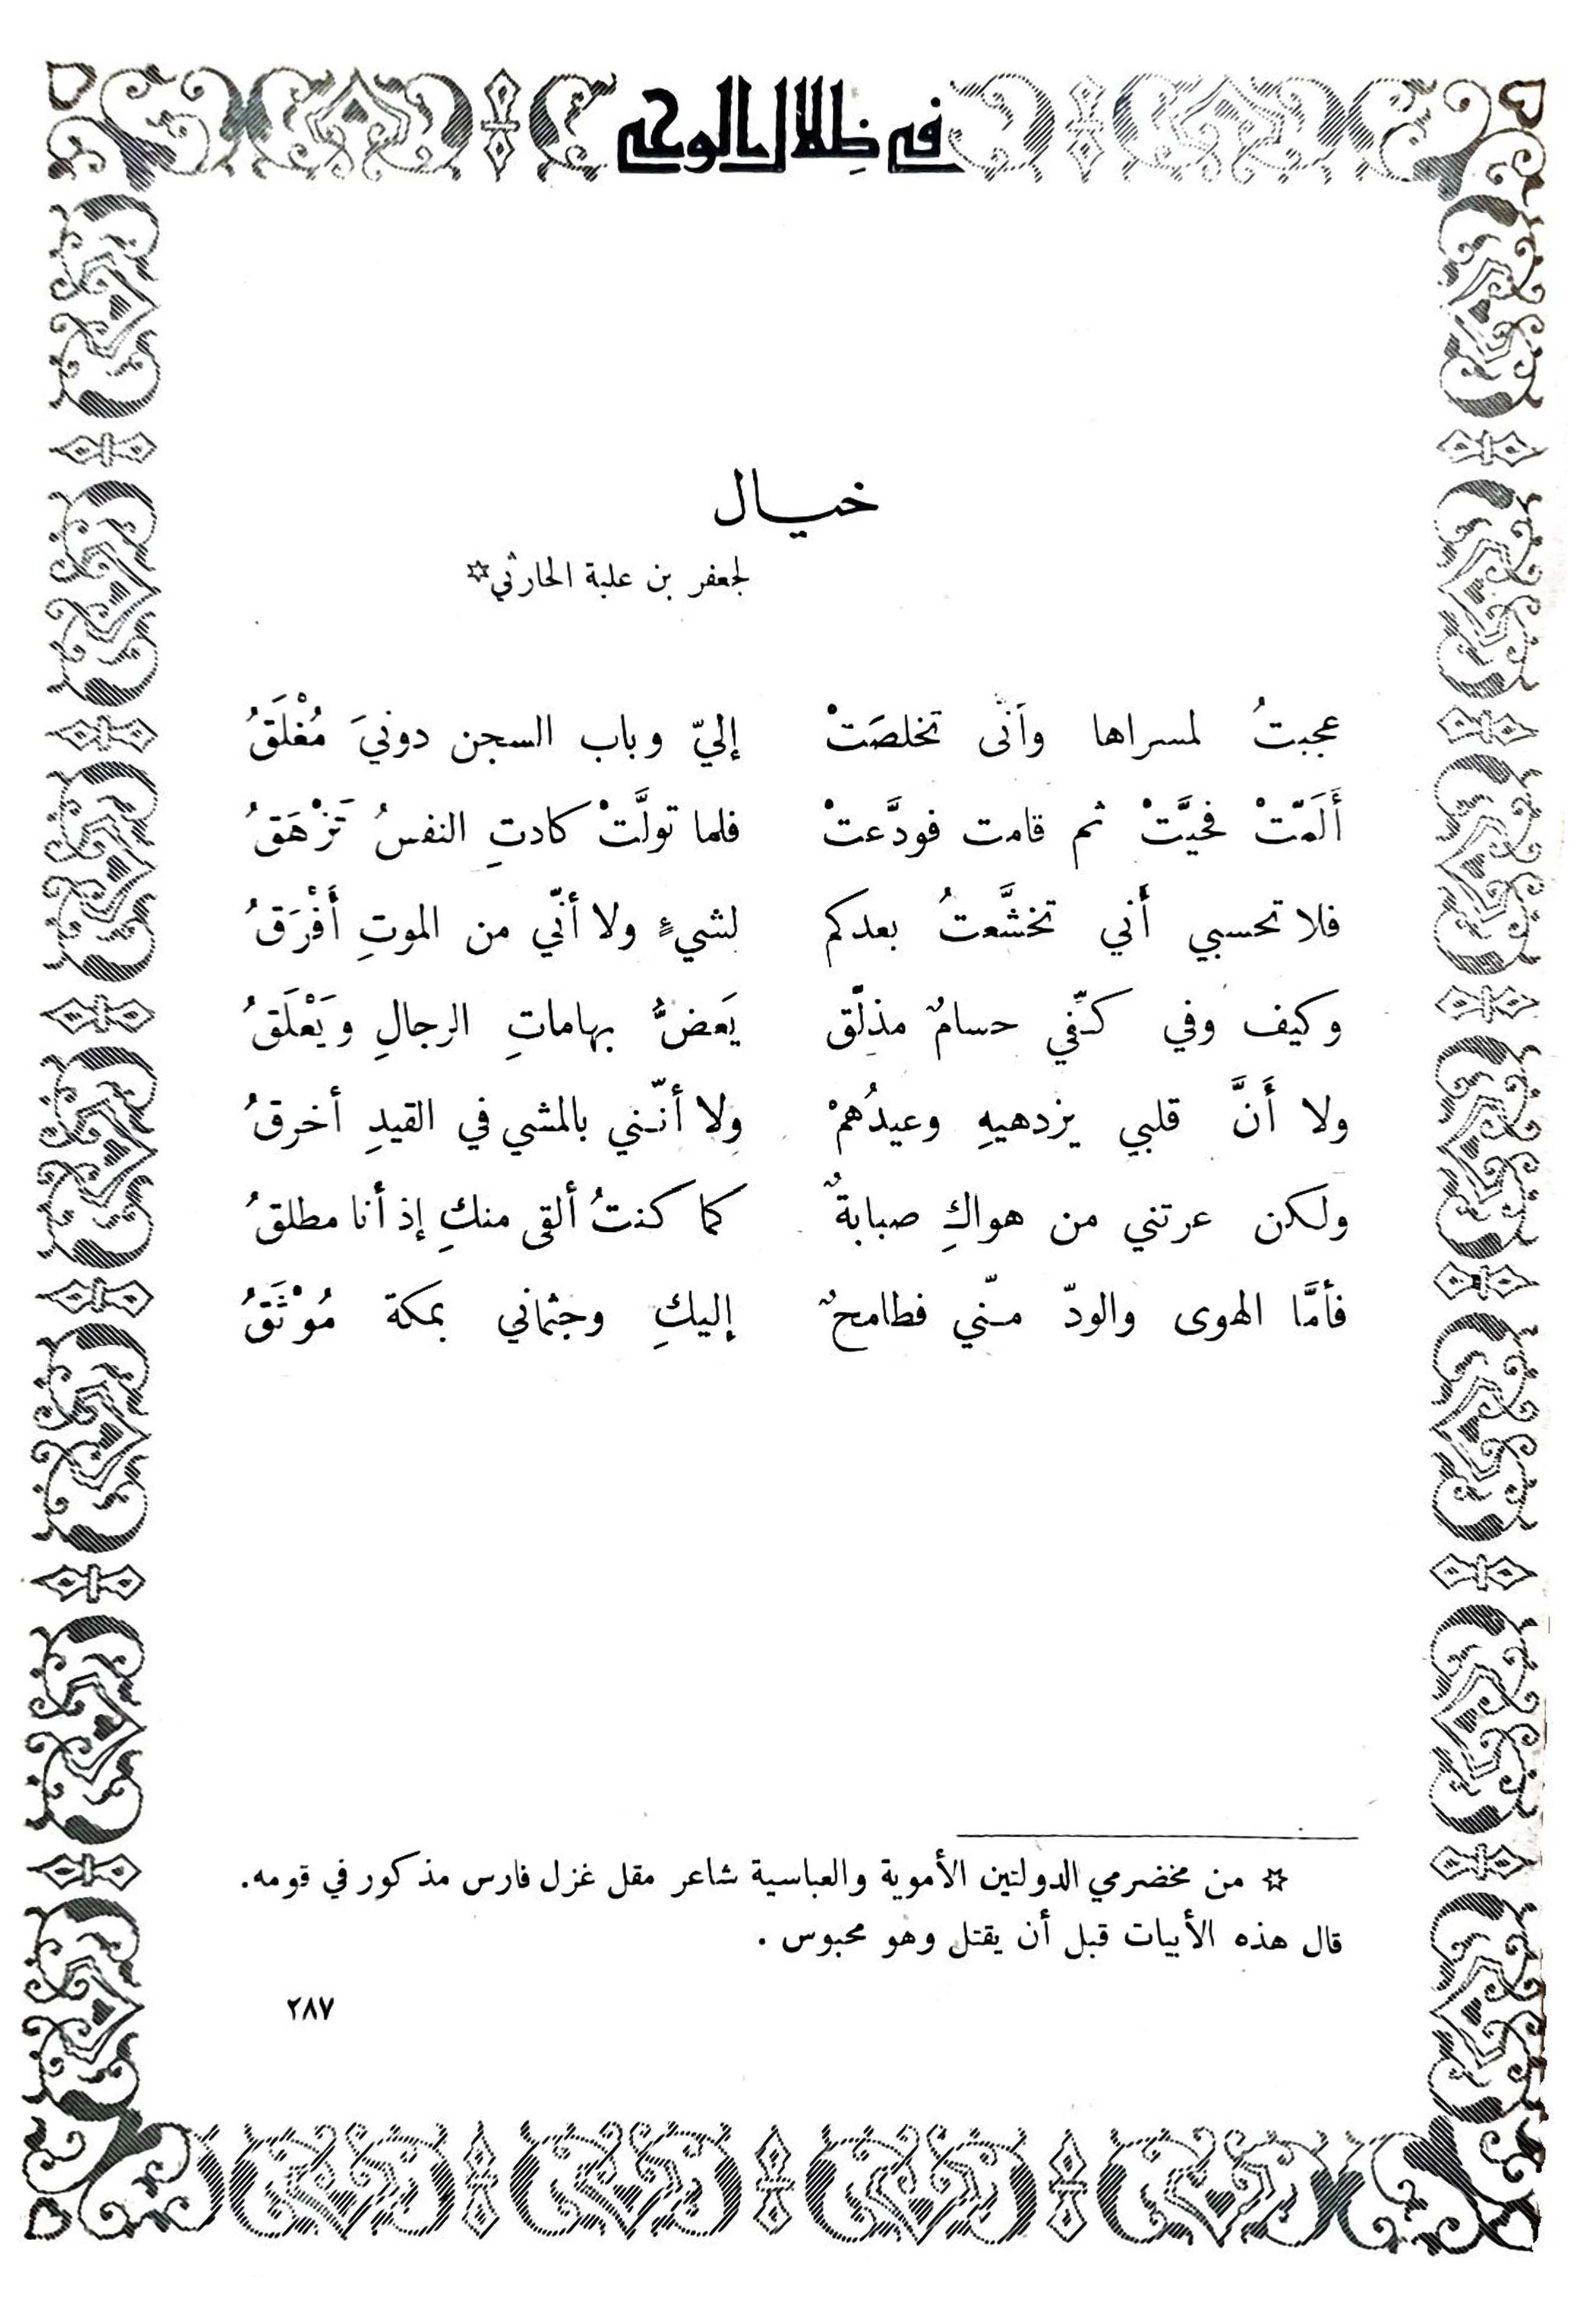 في ظلال الوحي
خيال
لجعفر بن علبة الحارثي☆
عجبتُ لمسراها وأَنّى تخلصَتْ إليّ وباب السجن دونيَ مُغْلَقُ
أَلَمّتْ فحيَّتْ ثم قامت فودَّعتْ فلما تولَّتْ كادتِ النفسُ تَزْهَقُ
فلا تحسبي أَني تخشَّعتُ بعدكم لشيءٍ ولا أنّي من الموتِ أَفْرَقُ
وكيف وفي كفّي حسامٌ مذلّق يَعضُّ بهاماتِ الرجالِ ويَعْلَقُ
ولا أَنَّ قلبي يزدهيهِ وعيدُهمْ ولا أنّني بالمشي في القيدِ أخرقُ
ولكن عرتني من هواكِ صبابةٌ كما كنتُ ألقى منكِ إذ أنا مطلقُ
فأمَّا الهوى والودّ منّي فطامحٌ إليكِ وجثماني بمكة مُوْثَقُ
☆ من مخضرمي الدولتين الأموية والعباسية شاعر مقل غزل فارس مذكور في قومه.
قال هذه الأبيات قبل أن يقتل وهو محبوس .
٢٨٧